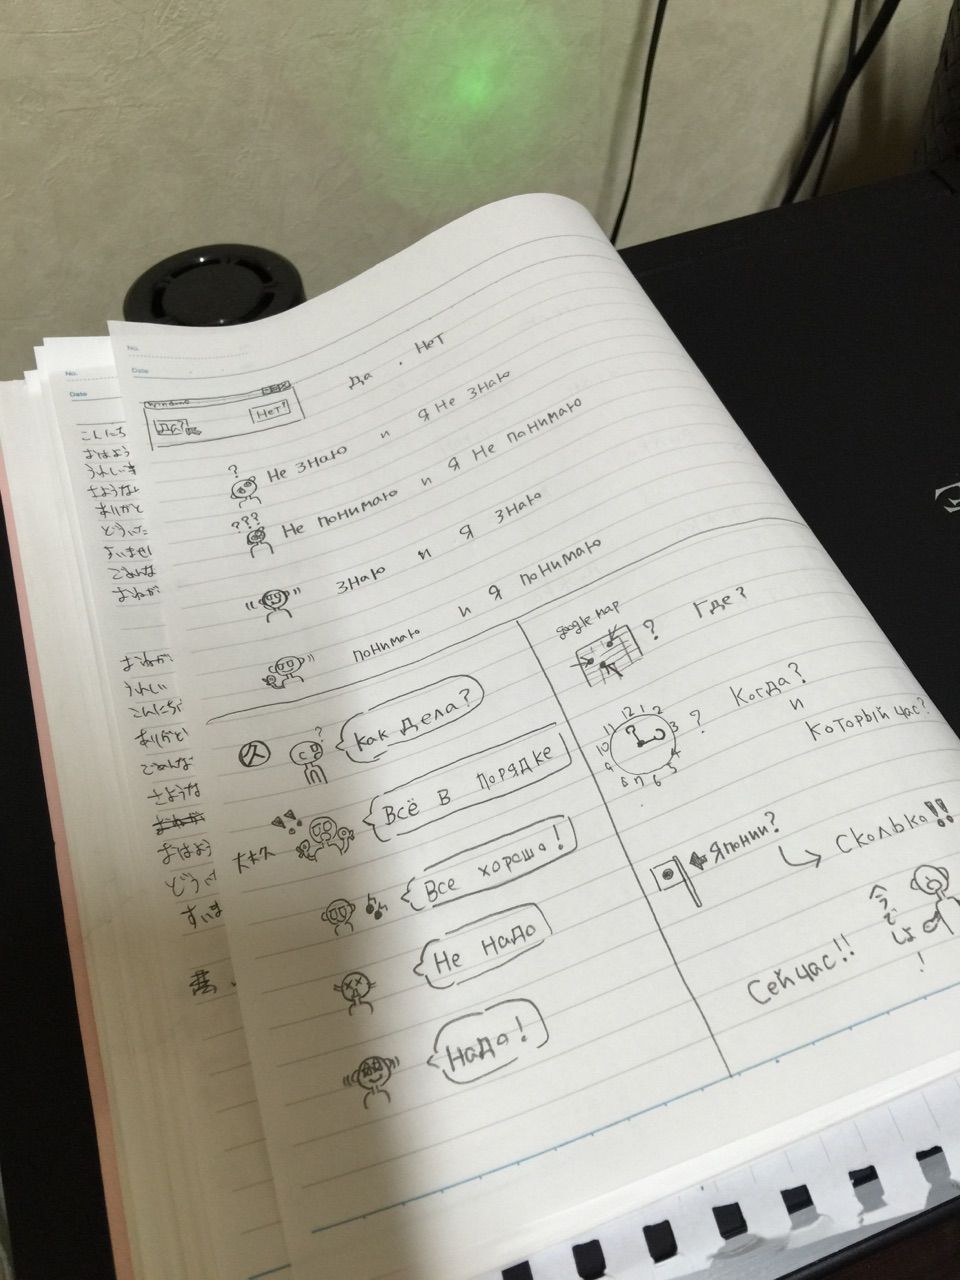 No.
Date
Да . Нет
Да?
Нет!
?
Не знаю и Я Не знаю
???
Не понимаю и Я Не понимаю
знаю и Я знаю
понимаю и Я понимаю
久
?
Как дела?
Всё в порядке
大丈久
Все хорошо!
Не надо
Надо!
google map
? Где?
12 1 2 3 4 5 6 7 8 9 10 11
? Когда?
и
который час?
Японии?
Сколько!!
Сейчас!!
今でしょ!
No.
Date
こんにち
おはよう
うれしい
さような
ありがと
どういた
すいませ
ごめんな
おねが
おねが
うれしい
こんにち
ありがと
ごめんな
さような
おはよう
どうい
すいま